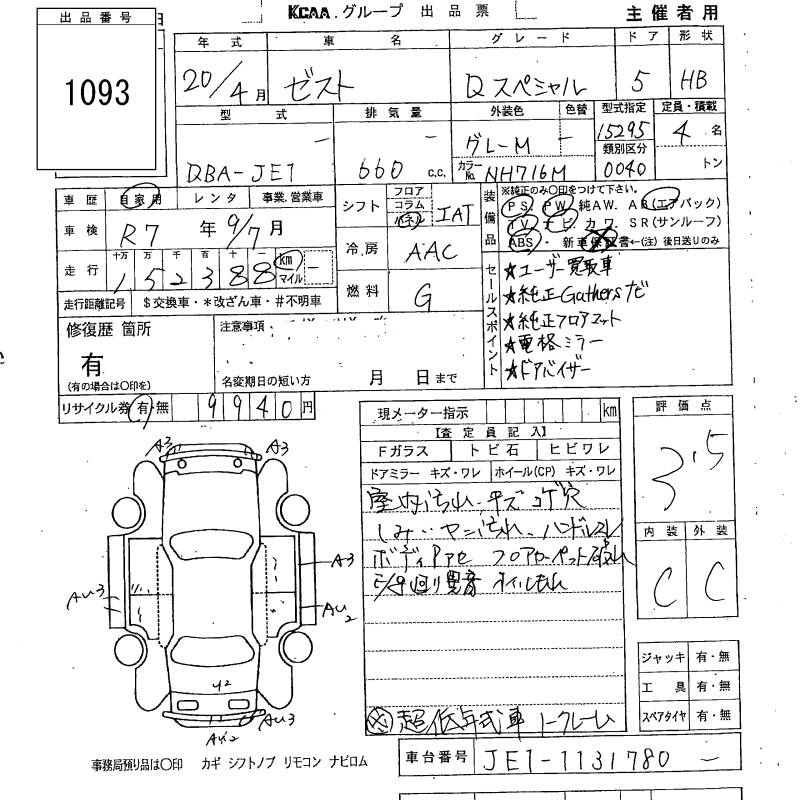 KCAA.グループ 出品票
主催者用
出品番号
1093
年式 車名 グレード ドア 形状
20/4月 ゼスト Qスペシャル 5 HB
型式 排気量 外装色 色替 型式指定 定員・積載
グレーM - 15295 4名
カラーNo. 類別区分
DBA-JE1 - 660 - c.c. NH716M 0040 トン
車歴 自家用 レンタ 事業.営業車
シフト フロア コラム パネル IAT
装備品
※純正のみ〇印をつけて下さい。
PS PW 純AW. AB(エアバック)
TV ナビ カワ SR(サンルーフ)
ABS・新車保証書←(注)後日送りのみ
車検 R7年9/7月
冷房 AAC
走行 十万 万 千 百 十 一
152388 km マイル -
走行距離記号 $交換車・*改ざん車・#不明車
燃料 G
セールスポイント
★ユーザー買取車
★純正Gathersナビ
★純正フロアマット
★電格ミラー
★ドアバイザー
修復歴 箇所
有
(有の場合は〇印を)
注意事項:
名変期日の短い方 月 日まで
リサイクル券 有・無 9940円
現メーター指示 km
【査定員記入】
Fガラス トビ石 ヒビワレ
ドアミラー キズ・ワレ ホイール(CP) キズ・ワレ
室内汚れ キズ コゲ穴
しみ・ヤニ汚れ ハンドルスレ
ボディ フロアカーペット
回り異音 オイルもれ
超低年式車 ノークレーム
評価点
3.5
内装 外装
C C
ジャッキ 有・無
工具 有・無
スペアタイヤ 有・無
A3 A3
A3
AU3 AU2
U2
AU3
AX2
事務局預り品は〇印 カギ シフトノブ リモコン ナビロム
車台番号 JE1-1131780 -